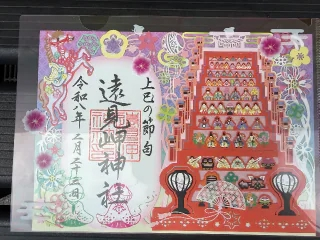 上巳の節句
遠見岬神社
令和八年二月二十三日